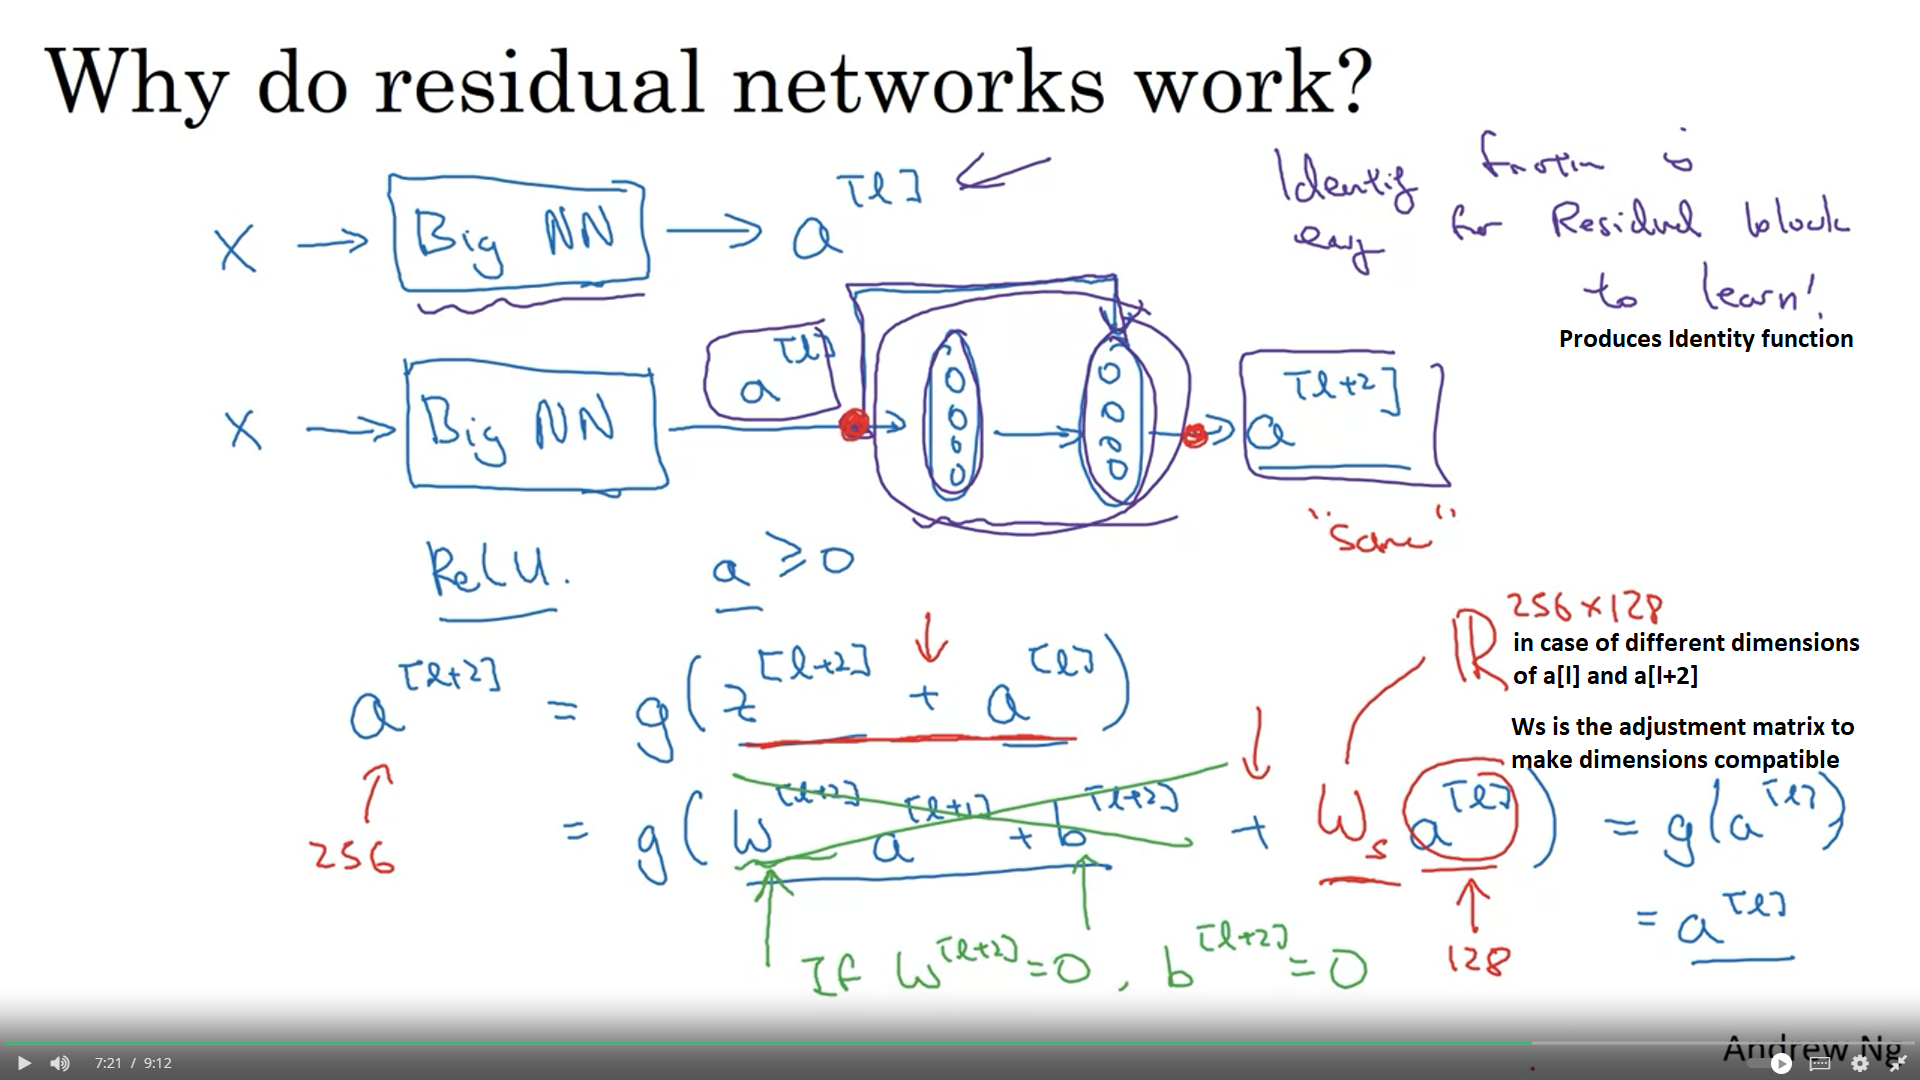 Why do residual networks work?
X → Big NN → a[l]
Identity function is
easy for Residual block
to learn!
Produces Identity function
X → Big NN → a[l] → a[l+2]
"Same"
ReLU. a ≥ 0
ℝ 256×128
in case of different dimensions
of a[l] and a[l+2]
a[l+2] = g(z[l+2] + a[l])
Ws is the adjustment matrix to
make dimensions compatible
256
= g(W[l+2] a[l+1] + b[l+2] + Ws a[l]) = g(a[l])
= a[l]
128
If W[l+2] = 0, b[l+2] = 0
Andrew Ng
7:21 / 9:12